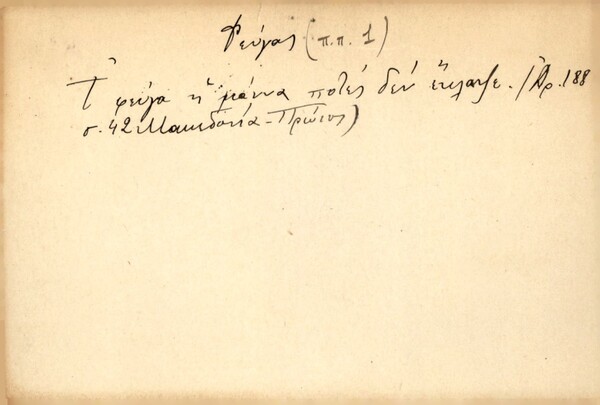 Φεύγας (π.π. 1)
Τ' φεύγα ἡ μάννα ποτές δέν ἔκλαψε. (Ἀρ. 188
σ. 42 Μακεδονία - Πρώιος)